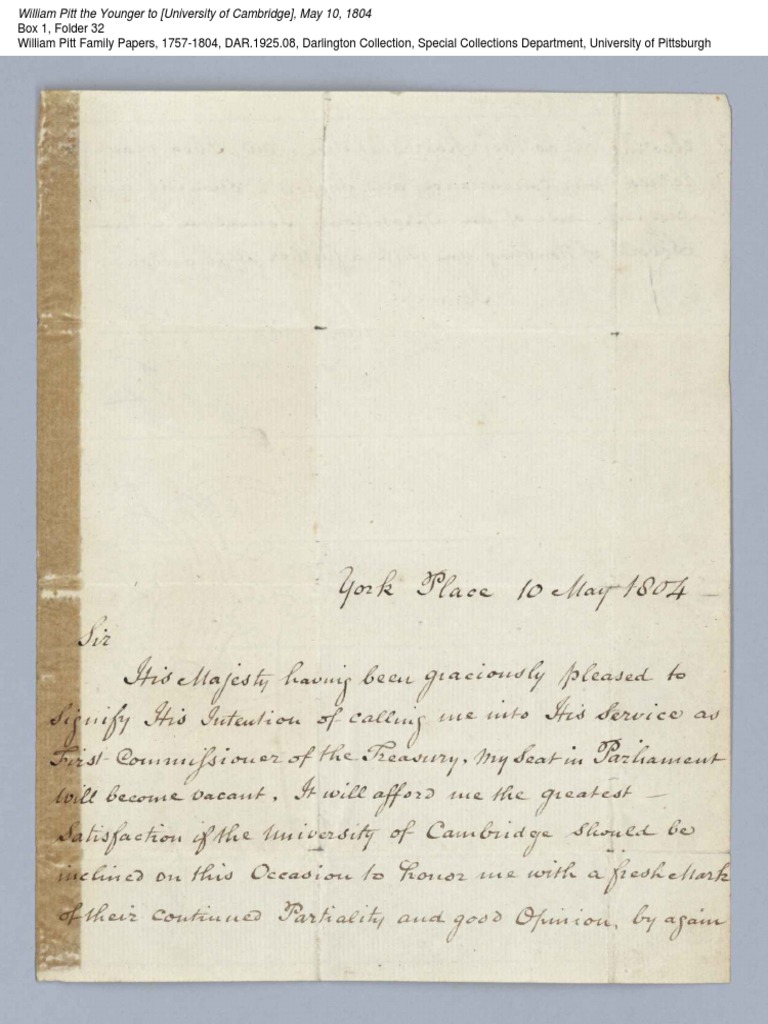 William Pitt the Younger to [University of Cambridge], May 10, 1804
Box 1, Folder 32
William Pitt Family Papers, 1757-1804, DAR.1925.08, Darlington Collection, Special Collections Department, University of Pittsburgh
York Place 10 May 1804 —
Sir
His Majesty having been graciously pleased to
signify His Intention of calling me into His Service as
First Commissioner of the Treasury, My Seat in Parliament
will become vacant. It will afford me the greatest —
Satisfaction if the University of Cambridge should be
inclined on this Occasion to honor me with a fresh Mark
of their continued Partiality and good Opinion, by again